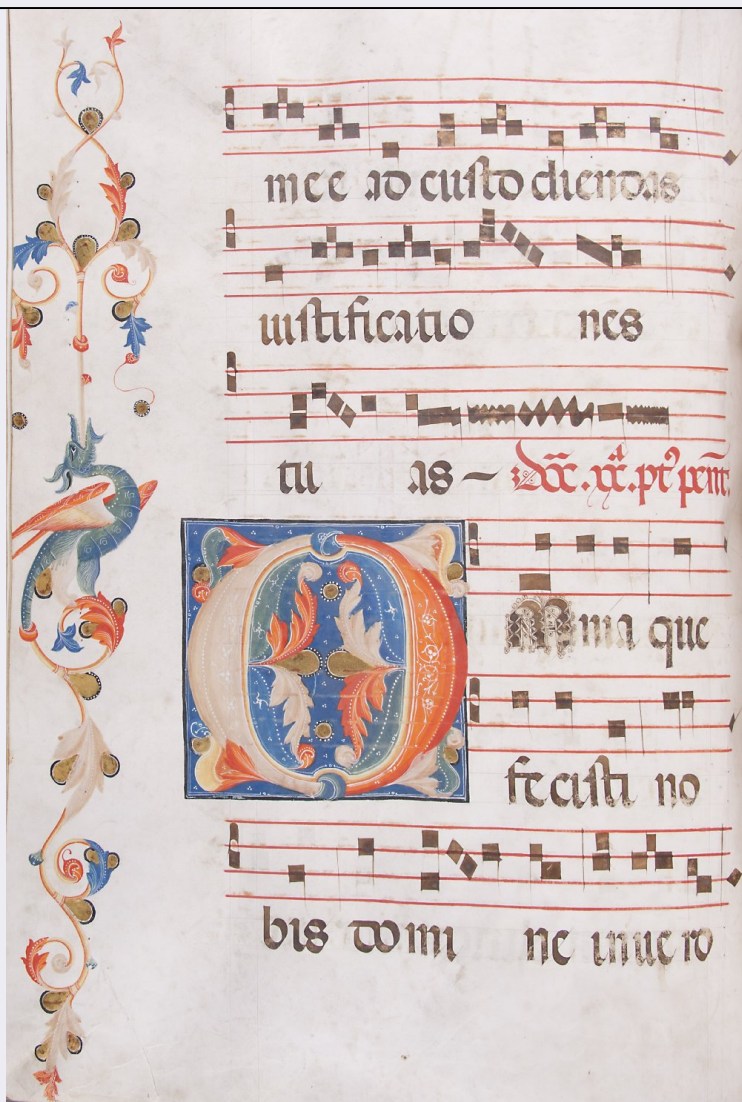 mee ad custodiendas
iustificatio nes
tu as – Dōc. xx. pt' pent
Omnia que
fecisti no
bis domi ne in uero